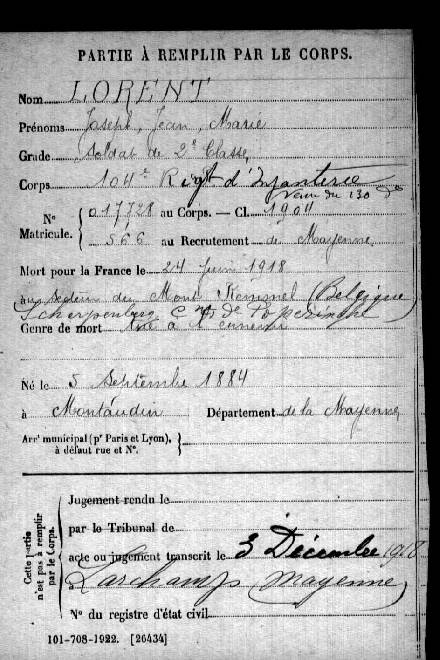 PARTIE À REMPLIR PAR LE CORPS.
Nom LORENT
Prénoms Joseph, Jean, Marie
Grade Soldat de 2e Classe,
Corps 104e Rgt d'Infanterie
Venu du 130e
N° 017728 au Corps. — Cl. 1904
Matricule. 566 au Recrutement de Mayenne.
Mort pour la France le 24 Juin 1918
au secteur du Mont Kemmel (Belgique)
Scherpenberg Cne de Poperinghe
Genre de mort tué à l'ennemi
Né le 5 Septembre 1884
à Montaudin Département de la Mayenne
Arrt municipal (pr Paris et Lyon),
à défaut rue et N°.
Cette partie n'est pas à remplir par le Corps.
Jugement rendu le
par le Tribunal de
acte ou jugement transcrit le 3 Décembre 1918
à Larchamp (Mayenne)
N° du registre d'état civil
101-708-1922. [26434]